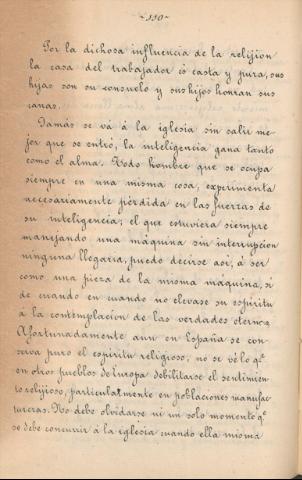 -110-
Por la dichosa influencia de la relijion
la casa del trabajador és casta y pura, sus
hijas son su consuelo y sus hijos honran sus
canas.
Jamás se vá á la iglesia sin salir me-
jor que se entró, la inteligencia gana tanto
como el alma. Todo hombre que se ocupa
siempre en una misma cosa, experimenta
necesariamente pérdida en las fuerzas de
su inteligencia; el que estuviera siempre
manejando una máquina sin interrupcion
ninguna llegaria, puede decirse asi, á ser
como una pieza de la misma máquina, si
de cuando en cuando no elevase su espiritu
á la contemplacion de las verdades eternas.
Afortunadamente aun en España se con-
serva puro el espiritu religioso, no se vé lo qe.
en otros pueblos de Europa debilitarse el sentimien
to relijioso, particularmente en poblaciones manufac-
tureras. No debe olvidarse ni un solo momento qe.
se debe concurrir á la iglesia cuando ella misma